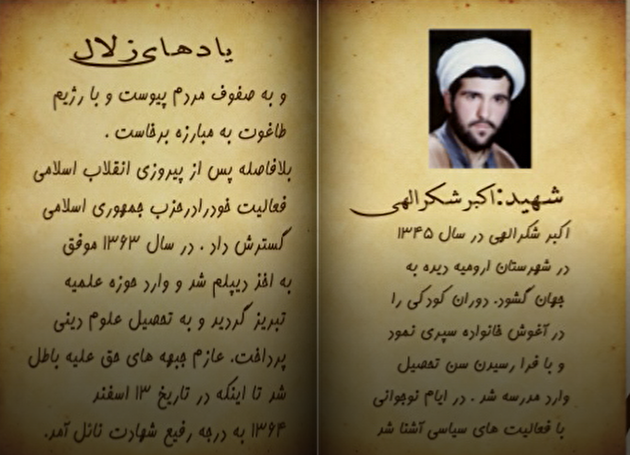 شهید:اکبر شکرالهی
اکبر شکرالهی در سال ۱۳۴۵
در شهرستان ارومیه دیده به
جهان گشود. دوران کودکی را
در آغوش خانواده سپری نمود
و با فرا رسیدن سن تحصیل
وارد مدرسه شد . در ایام نوجوانی
با فعالیت های سیاسی آشنا شد
یادهای زلال
و به صفوف مردم پیوست و با رژیم
طاغوت به مبارزه برخاست .
بلافاصله پس از پیروزی انقلاب اسلامی
فعالیت خودرادرحزب جمهوری اسلامی
گسترش داد . در سال ۱۳۶۳ موفق
به اخذ دیپلم شد و وارد حوزه علمیه
تبریز گردید و به تحصیل علوم دینی
پرداخت. عازم جبهه های حق علیه باطل
شد تا اینکه در تاریخ ۱۳ اسفند
۱۳۶۴ به درجه رفیع شهادت نائل آمد.